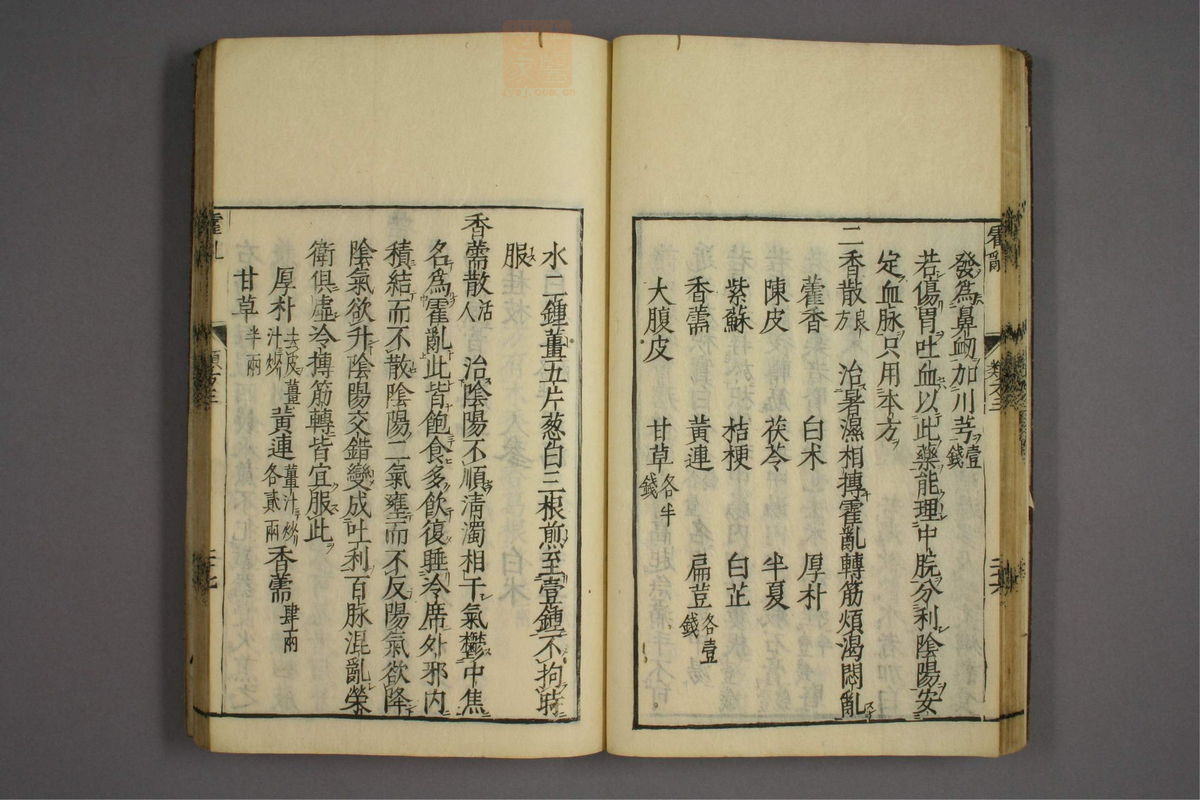 發爲鼻衂加川芎壹錢
若傷胃吐血以此藥能理中脘分利陰陽安
定血脉只用本方
二香散良方 治暑濕相搏霍亂轉筋煩渴悶亂
藿香 白朮 厚朴
陳皮 茯苓 半夏
紫蘇 桔梗 白芷
香薷 黃連 扁荳各壹錢
大腹皮 甘草各半錢
水二鍾薑五片葱白三根煎至壹鍾不拘時
服
香薷散活人 治陰陽不順淸濁相干氣鬱中焦
名爲霍亂此皆飽食多飮復睡冷席外邪内
積結而不散陰陽二氣壅而不反陽氣欲降
陰氣欲升陰陽交錯變成吐利百脉混亂榮
衛俱虛冷搏筋轉皆宜服此
厚朴去皮薑汁炒 黃連薑汁炒各貳兩 香薷肆兩
甘草半兩